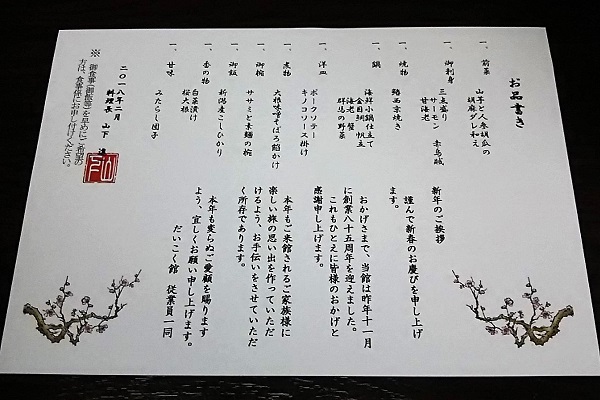 お品書き
一、前菜
山芋と人参胡瓜の
胡麻ダレ和え
一、御刺身
三点盛り
サーモン 赤烏賊
甘海老
一、焼物
鰆西京焼き
一、鍋
海鮮小鍋仕立て
金目鯛 帆立
海老 蟹
群馬の野菜
一、洋皿
ポークソテー
キノコソース掛け
一、煮物
大根味噌そぼろ餡かけ
一、御椀
ササミと素麺の椀
一、御飯
新潟産こしひかり
一、香の物
白菜漬け
桜大根
一、甘味
みたらし団子
二〇一八年二月
料理長 山下
※ 御食事(御飯等)を早めにご希望の
方は、食事係にお申し付けください。
新年のご挨拶
謹んで新春のお慶びを申し上げ
ます。
おかげさまで、当館は昨年十一月
に創業八十五周年を迎えました。
これもひとえに皆様のおかげと
感謝申し上げます。
本年もご来館されるご家族様に
楽しい旅の思い出を作っていただ
けるよう、お手伝いをさせていただ
く所存であります。
本年も変らぬご愛顧を賜ります
よう、宜しくお願い申し上げます。
だいこく館 従業員一同